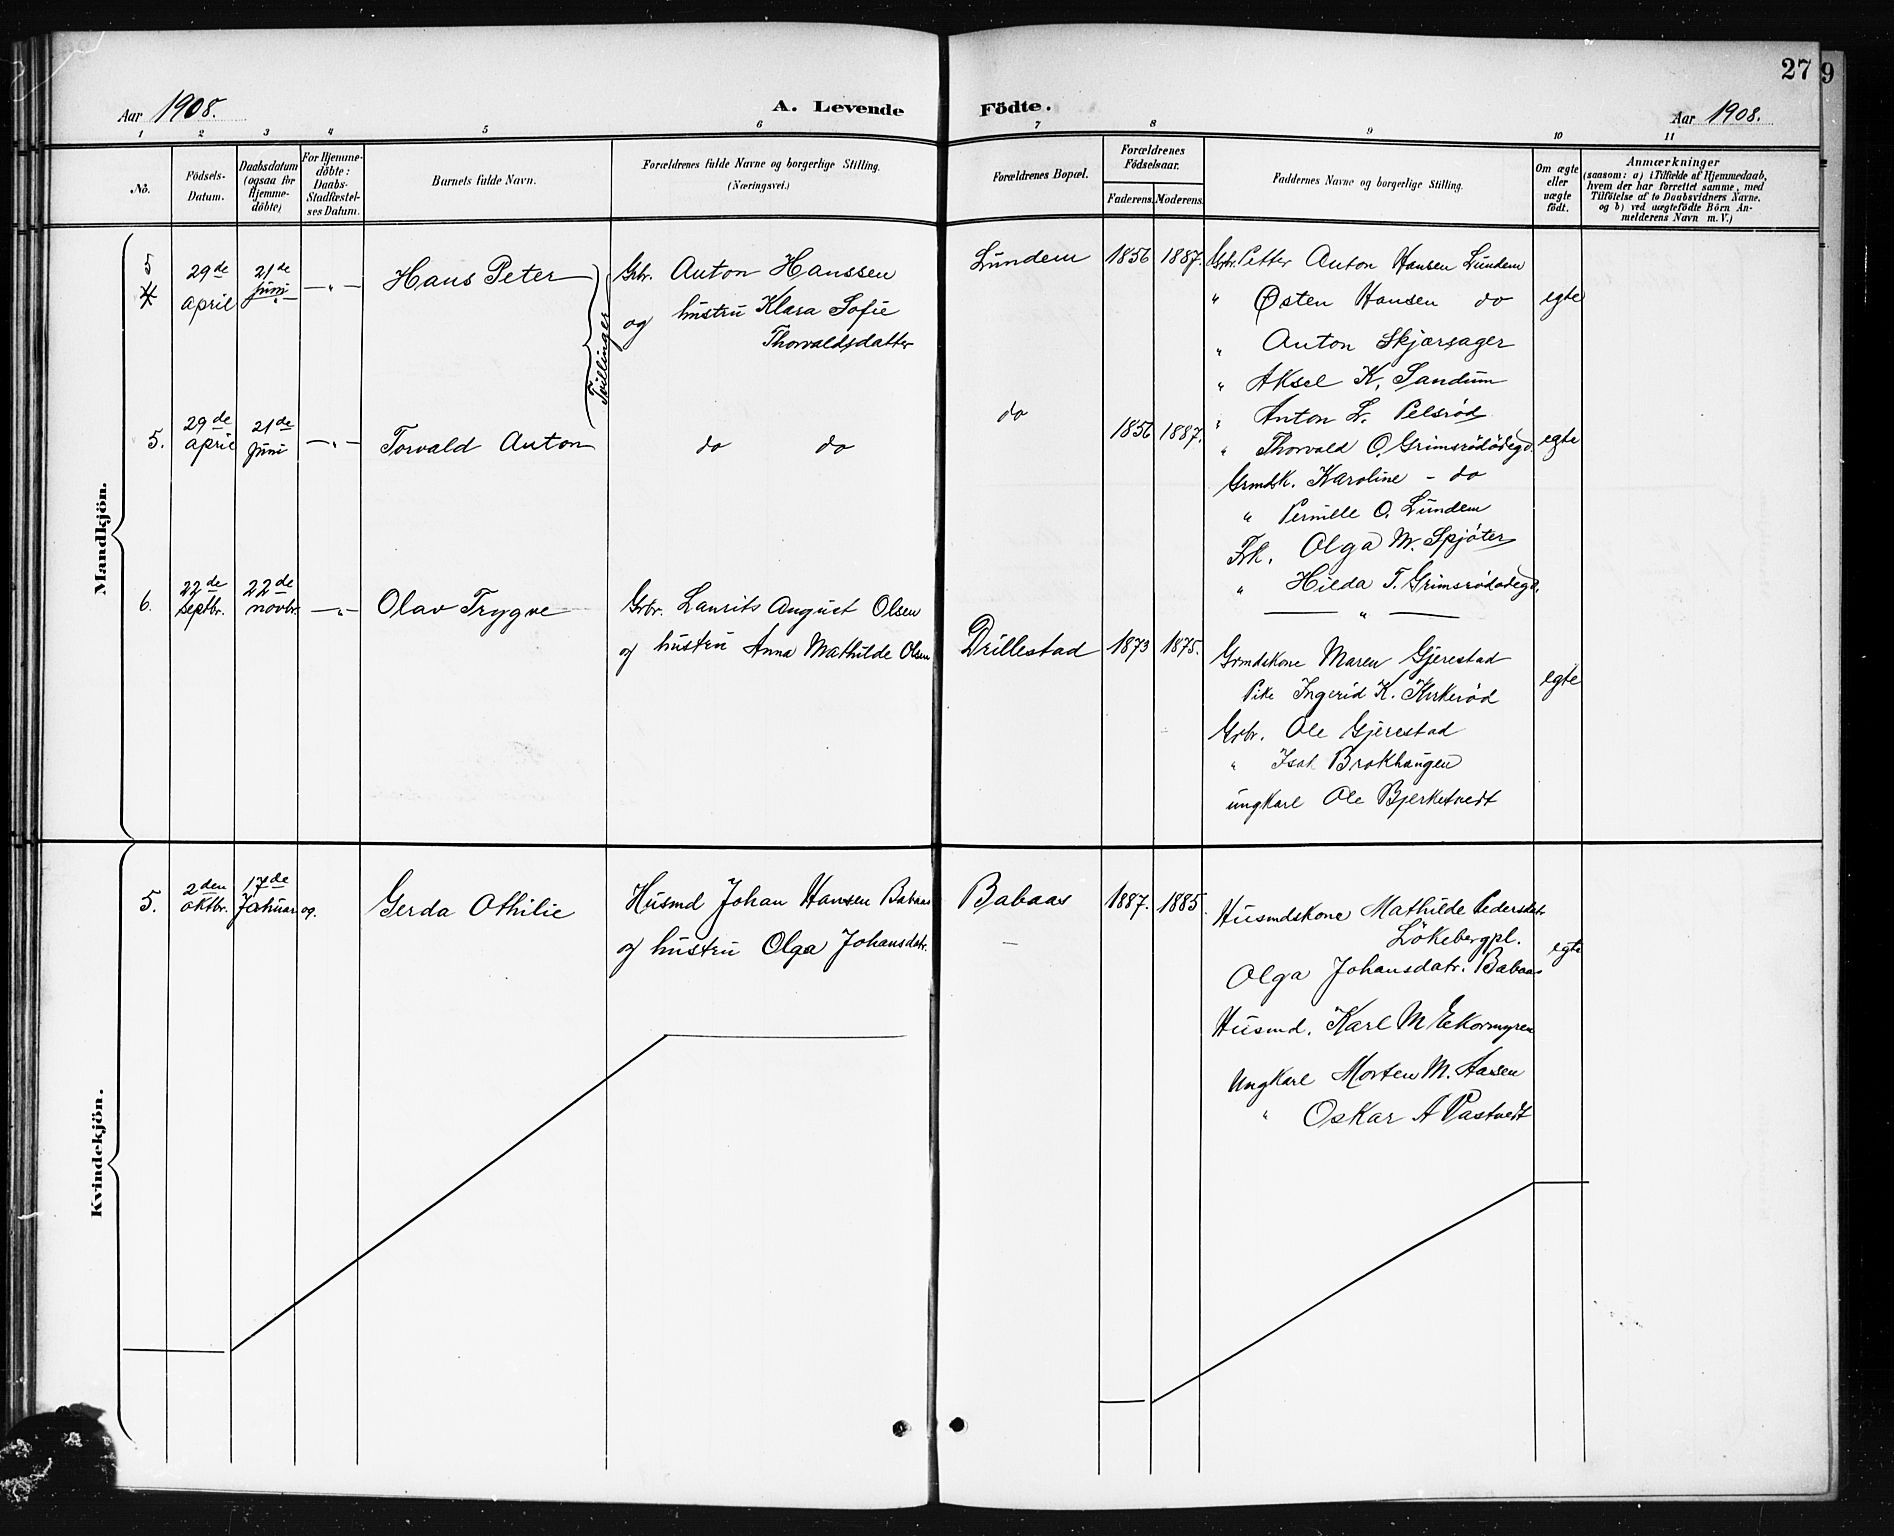 27
9
Aar 1908.
A. Levende
Födte.
Aar 1908.
1 2 3 4 5 6 7 8 9 10 11
No.
Födsels-
Datum.
Daabsdatum
(ogsaa for
Hjemme-
döbte)
For Hjemme-
döbte:
Daabs-
Stadfæstel-
ses Datum.
Barnets fulde Navn.
Forældrenes fulde Navne og borgerlige Stilling.
(Næringsvei.)
Forældrenes Bopæl.
Forældrenes
Födselsaar.
Faderens.
Moderens.
Faddernes Navne og borgerlige Stilling.
Om ægte
eller
uægte
födt.
Anmærkninger
(saasom: a) i Tilfælde af Hjemmedaab,
hvem der har forrettet samme, med
Tilföielse af to Daabsvidners Navne.
og b) ved uægtefödte Börn An-
melderens Navn m. V.)
Mandkjön.
5
4
29de
april
21de
Juni
—„—
Hans Peter
Tvillinger
Grbr. Anton Hanssen
og hustru Klara Sofie
Thorvaldsdatter
Lundem
1856
1887.
Grbr. Petter Anton Hansen Lundem
" Østen Hansen do
" Anton Skjærsager
" Aksel K. Sandum
" Anton L. Pelsrød
egte
5.
29de
april
21de
Juni
—„—
Torvald Anton
do do
do
1856
1887.
" Thorvald O. Grimsrödödegd.
Grmdsk. Karoline - do
" Pernille O. Lundem
Frk. Olga M. Spjöter
" Hilda T. Grimsrödödegd.
— " —
egte
6.
22de
septbr.
22de
novbr.
—„—
Olav Trygve
Grbr. Laurits August Olsen
og hustru Anna Mathilde Olsen
Drillestad
1873
1875.
Grmdskone Maren Gjerestad
Pike Ingerid K. Kirkerød
Grbr. Ole Gjerestad
" Isak Brokhaugen
ungkarl Ole Bjerketvedt
egte
Kvindekjön.
5.
2den
oktbr.
17de
Januar 09.
Gerda Othilie
Husmd Johan Hansen Babaas
og hustru Olga Johansdatr.
Babaas
—
1887.
1885.
Husmdskone Mathilde Pedersdatr
Lökebergpl.
Olga Johansdatr. Babaas
Husmd. Karl M Ekormyren
Ungkarl Morten M. Aasen
" Oskar A Pastvedt
egte